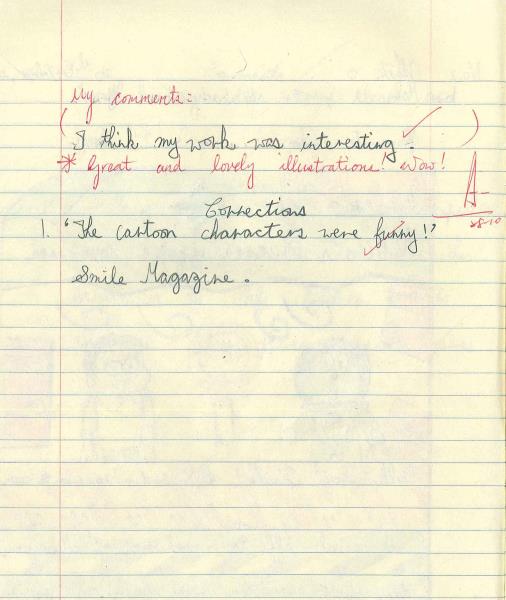 My comments:
( I think my work was interesting. )
* Great and lovely illustrations. Wow!
A-
28-10
Corrections
1. "The cartoon characters were funny!"
Smile Magazine.